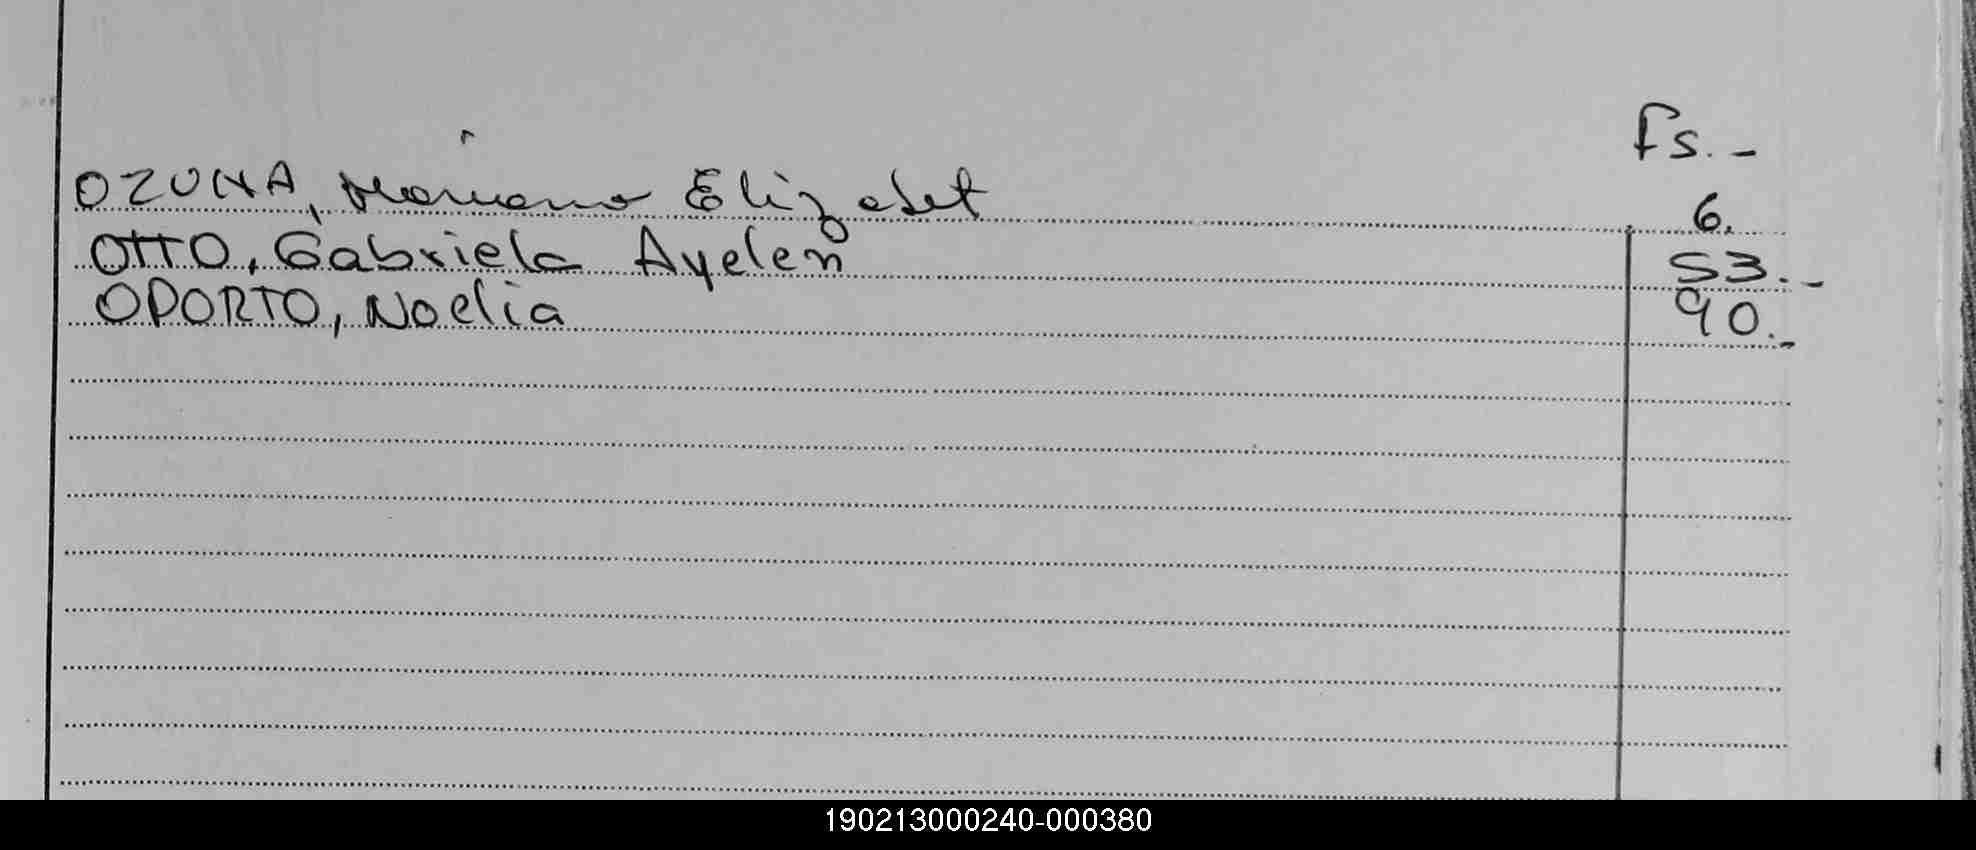 Fs.-
OZUNA, Mariana Elizabet 6.
OTTO, Gabriela Ayelen 53.-
OPORTO, Noelia 90.-
190213000240-000380